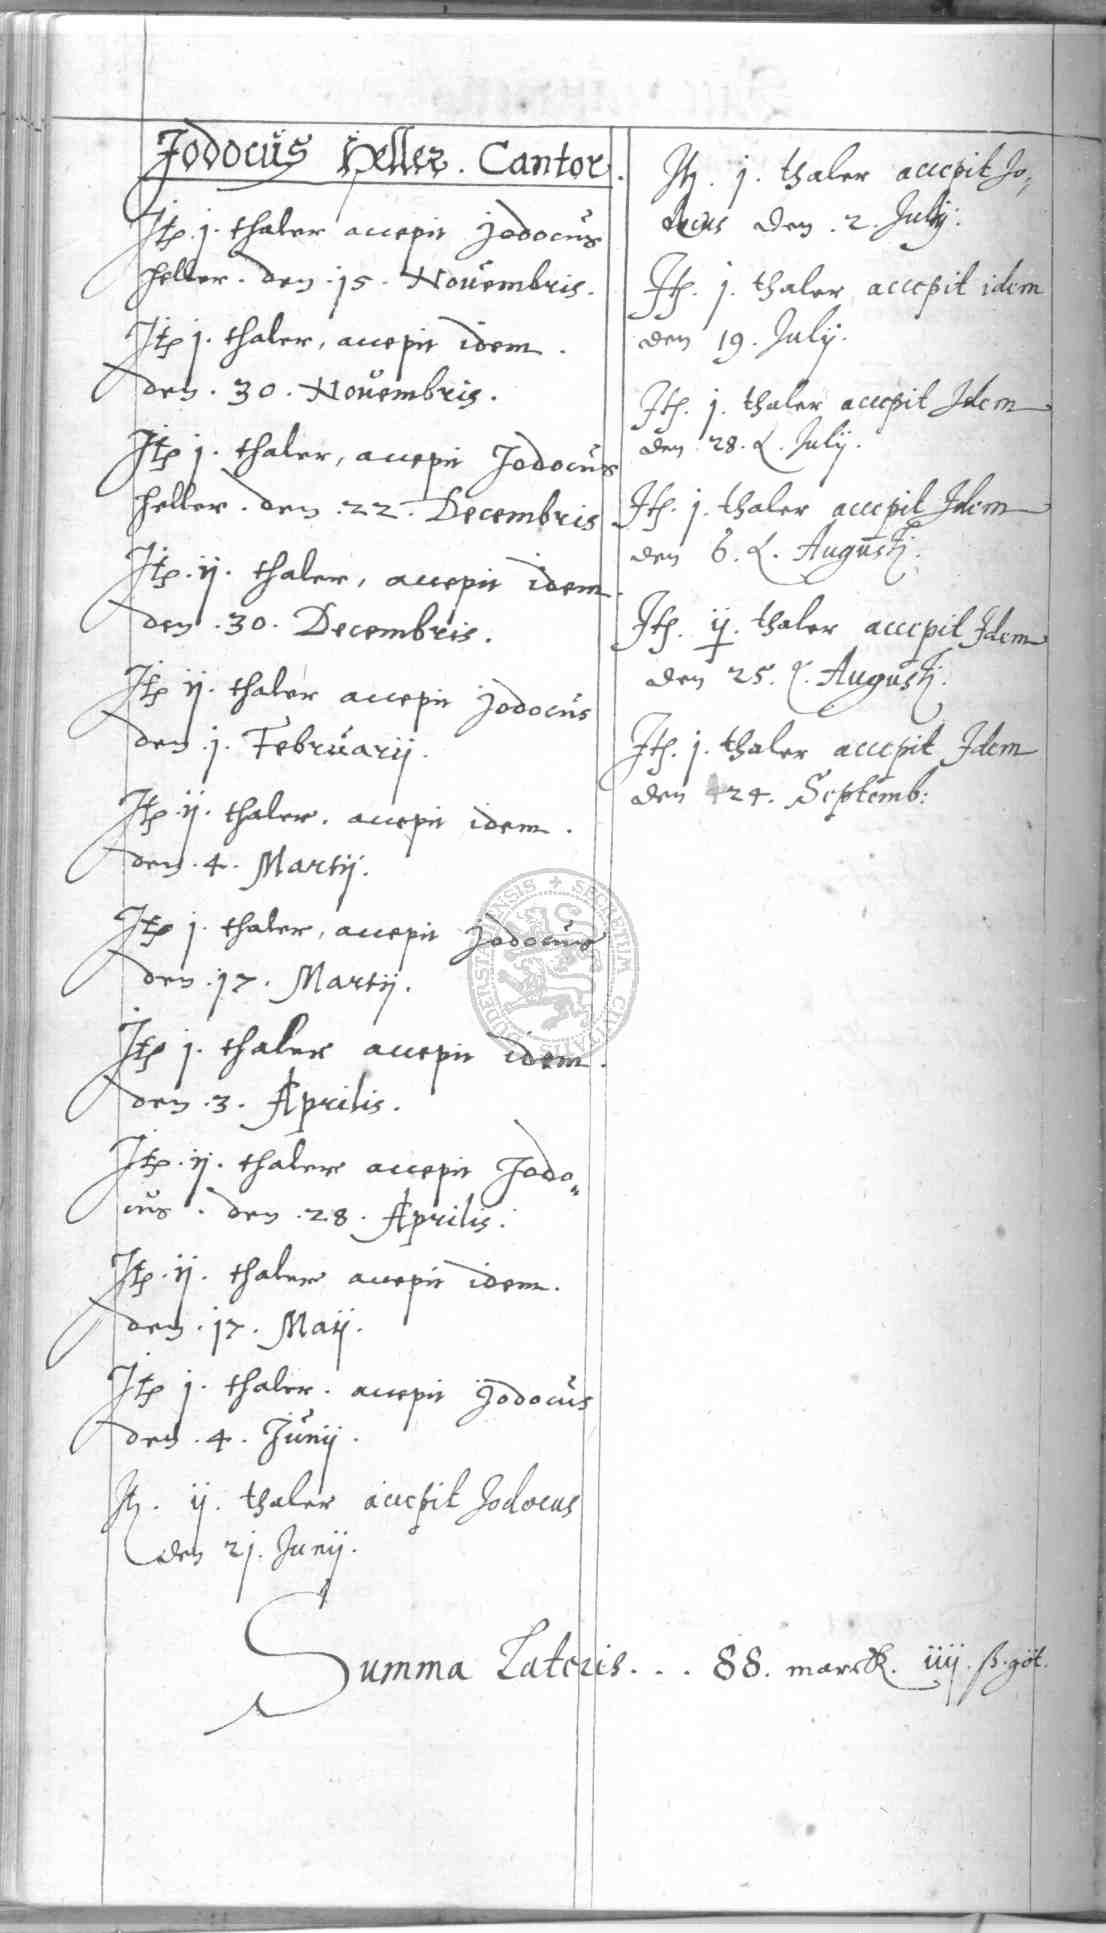 Jodocus Heller. Cantor.
Itp. j. thaler accepit Jodocus
Heller. den .15. Novembris.
Itp j. thaler, accepit idem.
den .30. Novembris.
Itp j. thaler, accepit Jodocus
Heller. den .22. Decembris
Itp. ij. thaler, accepit idem.
den .30. Decembris.
Itp ij. thaler accepit Jodocus
den .j. Februarij.
Itp ij. thaler. accepit idem.
den .4. Martij.
Itp j. thaler, accepit Jodocus
den .17. Martij.
Itp j. thaler accepit idem.
den .3. Aprilis.
Itp. ij. thaler accepit Jodo„
cus. den .28. Aprilis.
Itp. ij. thaler accepit idem.
den .17. Maij.
Itp j. thaler. accepit Jodocus
den .4. Junij.
It. ij. thaler accepit Jodocus
den 21. Junij.
It. j. thaler accepit Jo,
docus den .2. Julij.
Ith. j. thaler accepit idem
den 19. Julij.
Ith. j. thaler accepit Idem
den 28. Julij.
Ith. j. thaler accepit Idem
den 6. Augustj.
Ith. ij. thaler accepit Idem
den 25. Augustj.
Ith. j. thaler accepit Idem
den 24. Septemb:
Summa Lateris... 88. marck. iiij. ß. göt.
SECRETUM CIVITATIS DUDERSTADENSIS